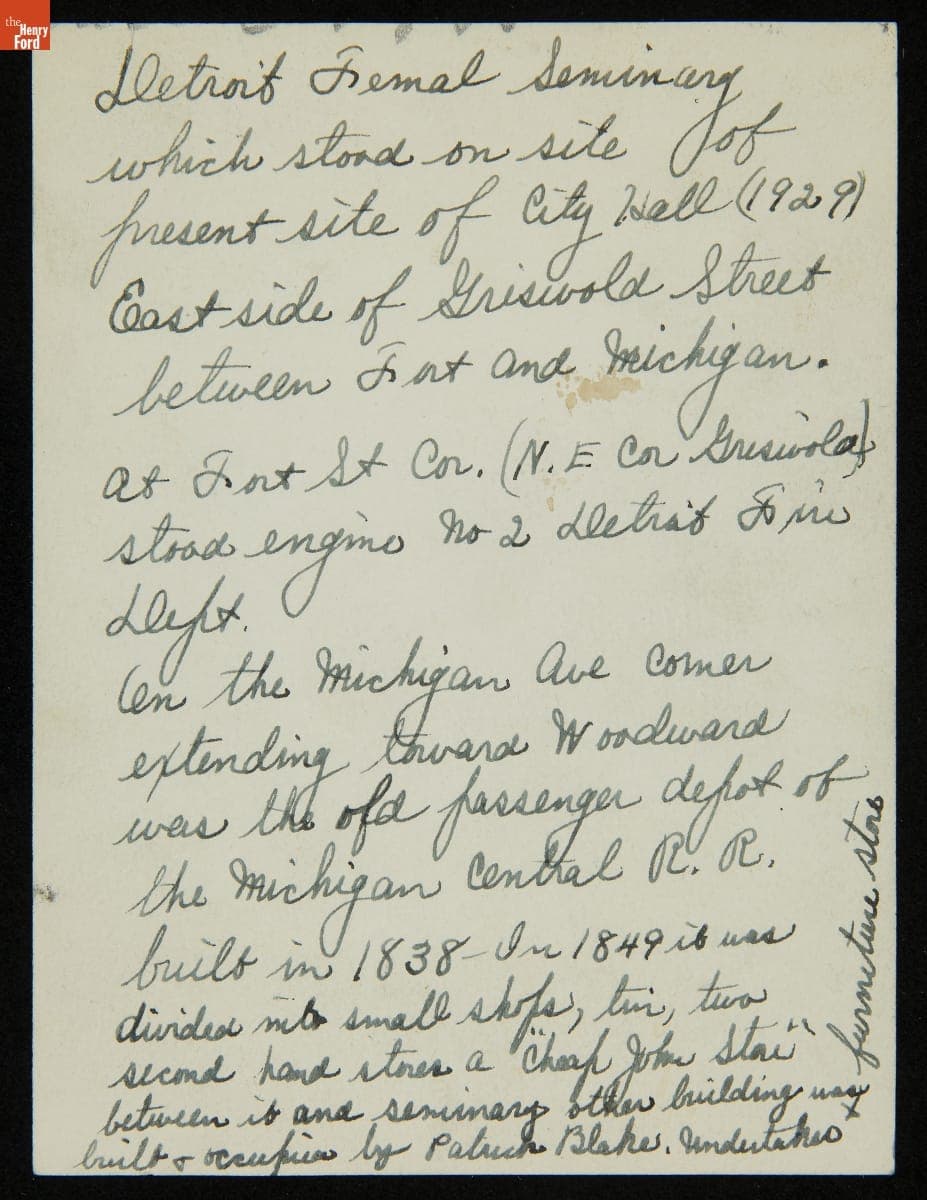 the Henry Ford
Detroit Femal Seminary
which stood on site of
present site of City Hall (1929)
East side of Griswold Street
between Fort and Michigan.
At Fort St Cor. (N.E Cor Griswold)
stood engine No 2 Detroit Fire
Dept.
On the Michigan Ave corner
extending toward Woodward
was the old passenger depot of
the Michigan Central R. R.
built in 1838 - In 1849 it was
divided into small shops, tin, two
second hand stores a "Cheap John Store"
between it and seminary other building was
built & occupied by Patrick Blake. Undertaker
x furniture store